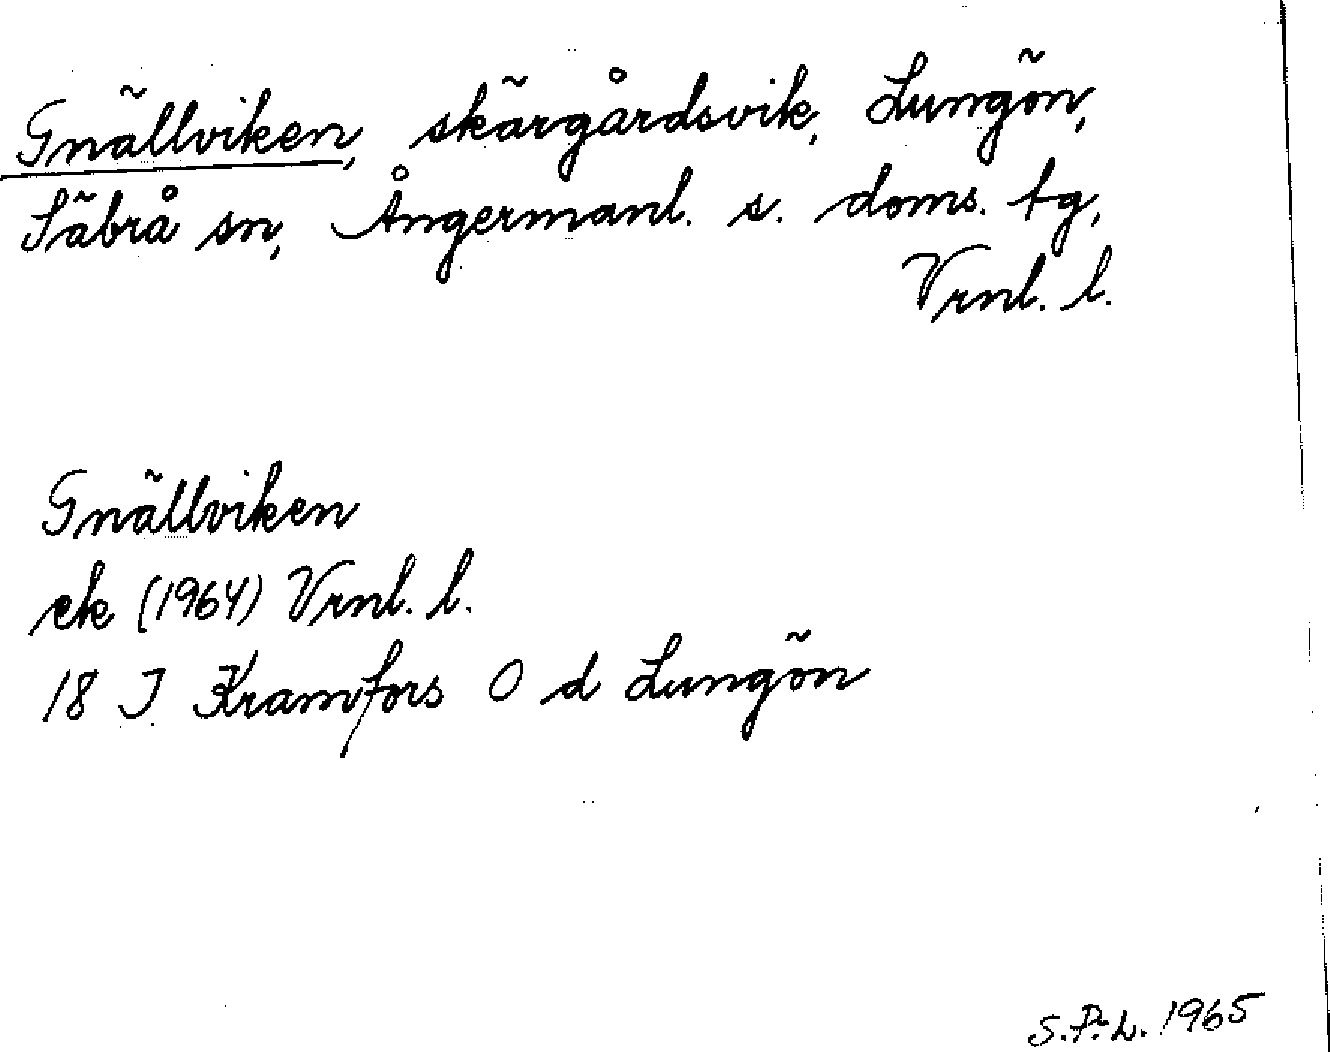 Gnällviken, skärgårdsvik, Lungön,
Säbrå sn, Ångermanl. s. doms. tg,
Vrnl. l.
Gnällviken
ek (1964) Vrnl. l.
18 I Kramfors O d Lungön
S.P.L. 1965